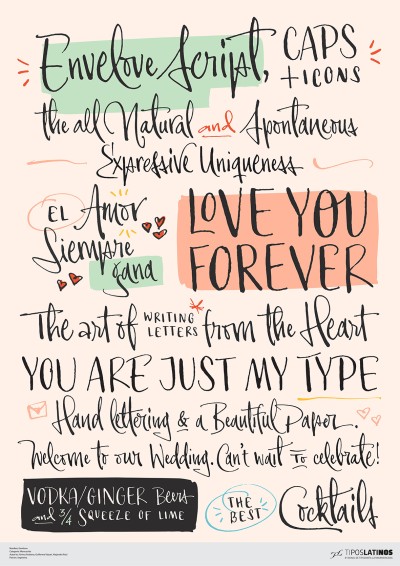 Envelove Script, CAPS
+ICONS
the all Natural and Spontaneous
Expressive Uniqueness
EL Amor
Siempre
gana
LOVE YOU
FOREVER
The art of WRITING LETTERS from the Heart
YOU ARE JUST MY TYPE
Hand lettering & a Beautiful Paper.
Welcome to our Wedding. Can't wait TO celebrate!
VODKA/GINGER Beers
and 3/4 SQUEEZE OF LIME
THE BEST
Cocktails
TIPOSLATINOS